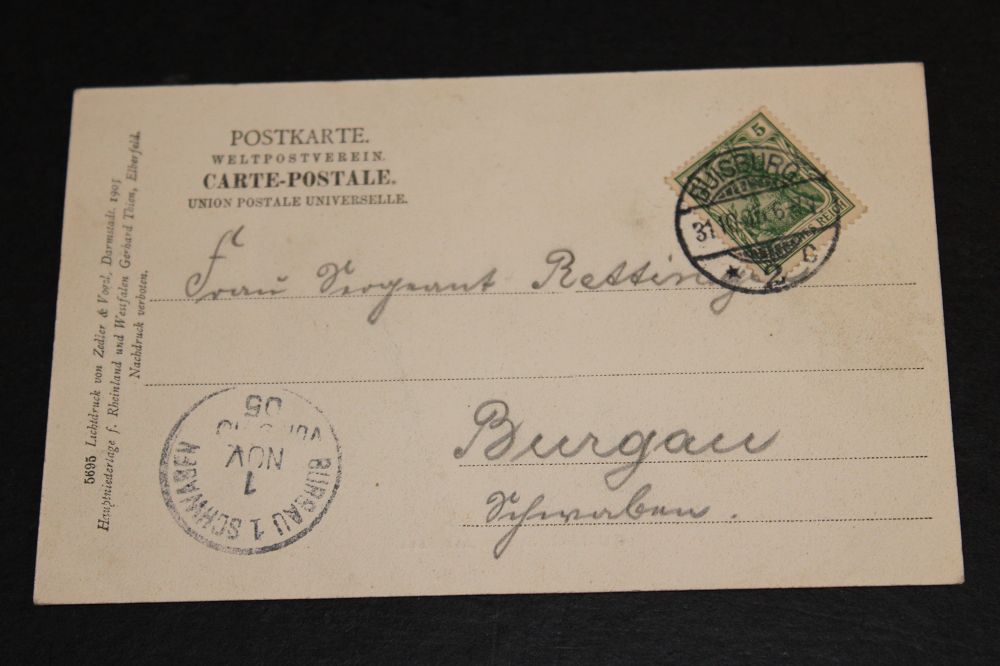 POSTKARTE.
WELTPOSTVEREIN.
CARTE-POSTALE.
UNION POSTALE UNIVERSELLE.
5
DUISBURG
31.10.05.6
REICH
* 2 c
Frau Sergeant Retting
Burgau
Schwaben.
BURGAU 1 SCHWABEN
1
NOV
05
5695 Lichtdruck von Zedler & Vogel, Darmstadt. 1901
Hauptniederlage f. Rheinland und Westfalen Gerhard Thien, Elberfeld.
Nachdruck verboten.